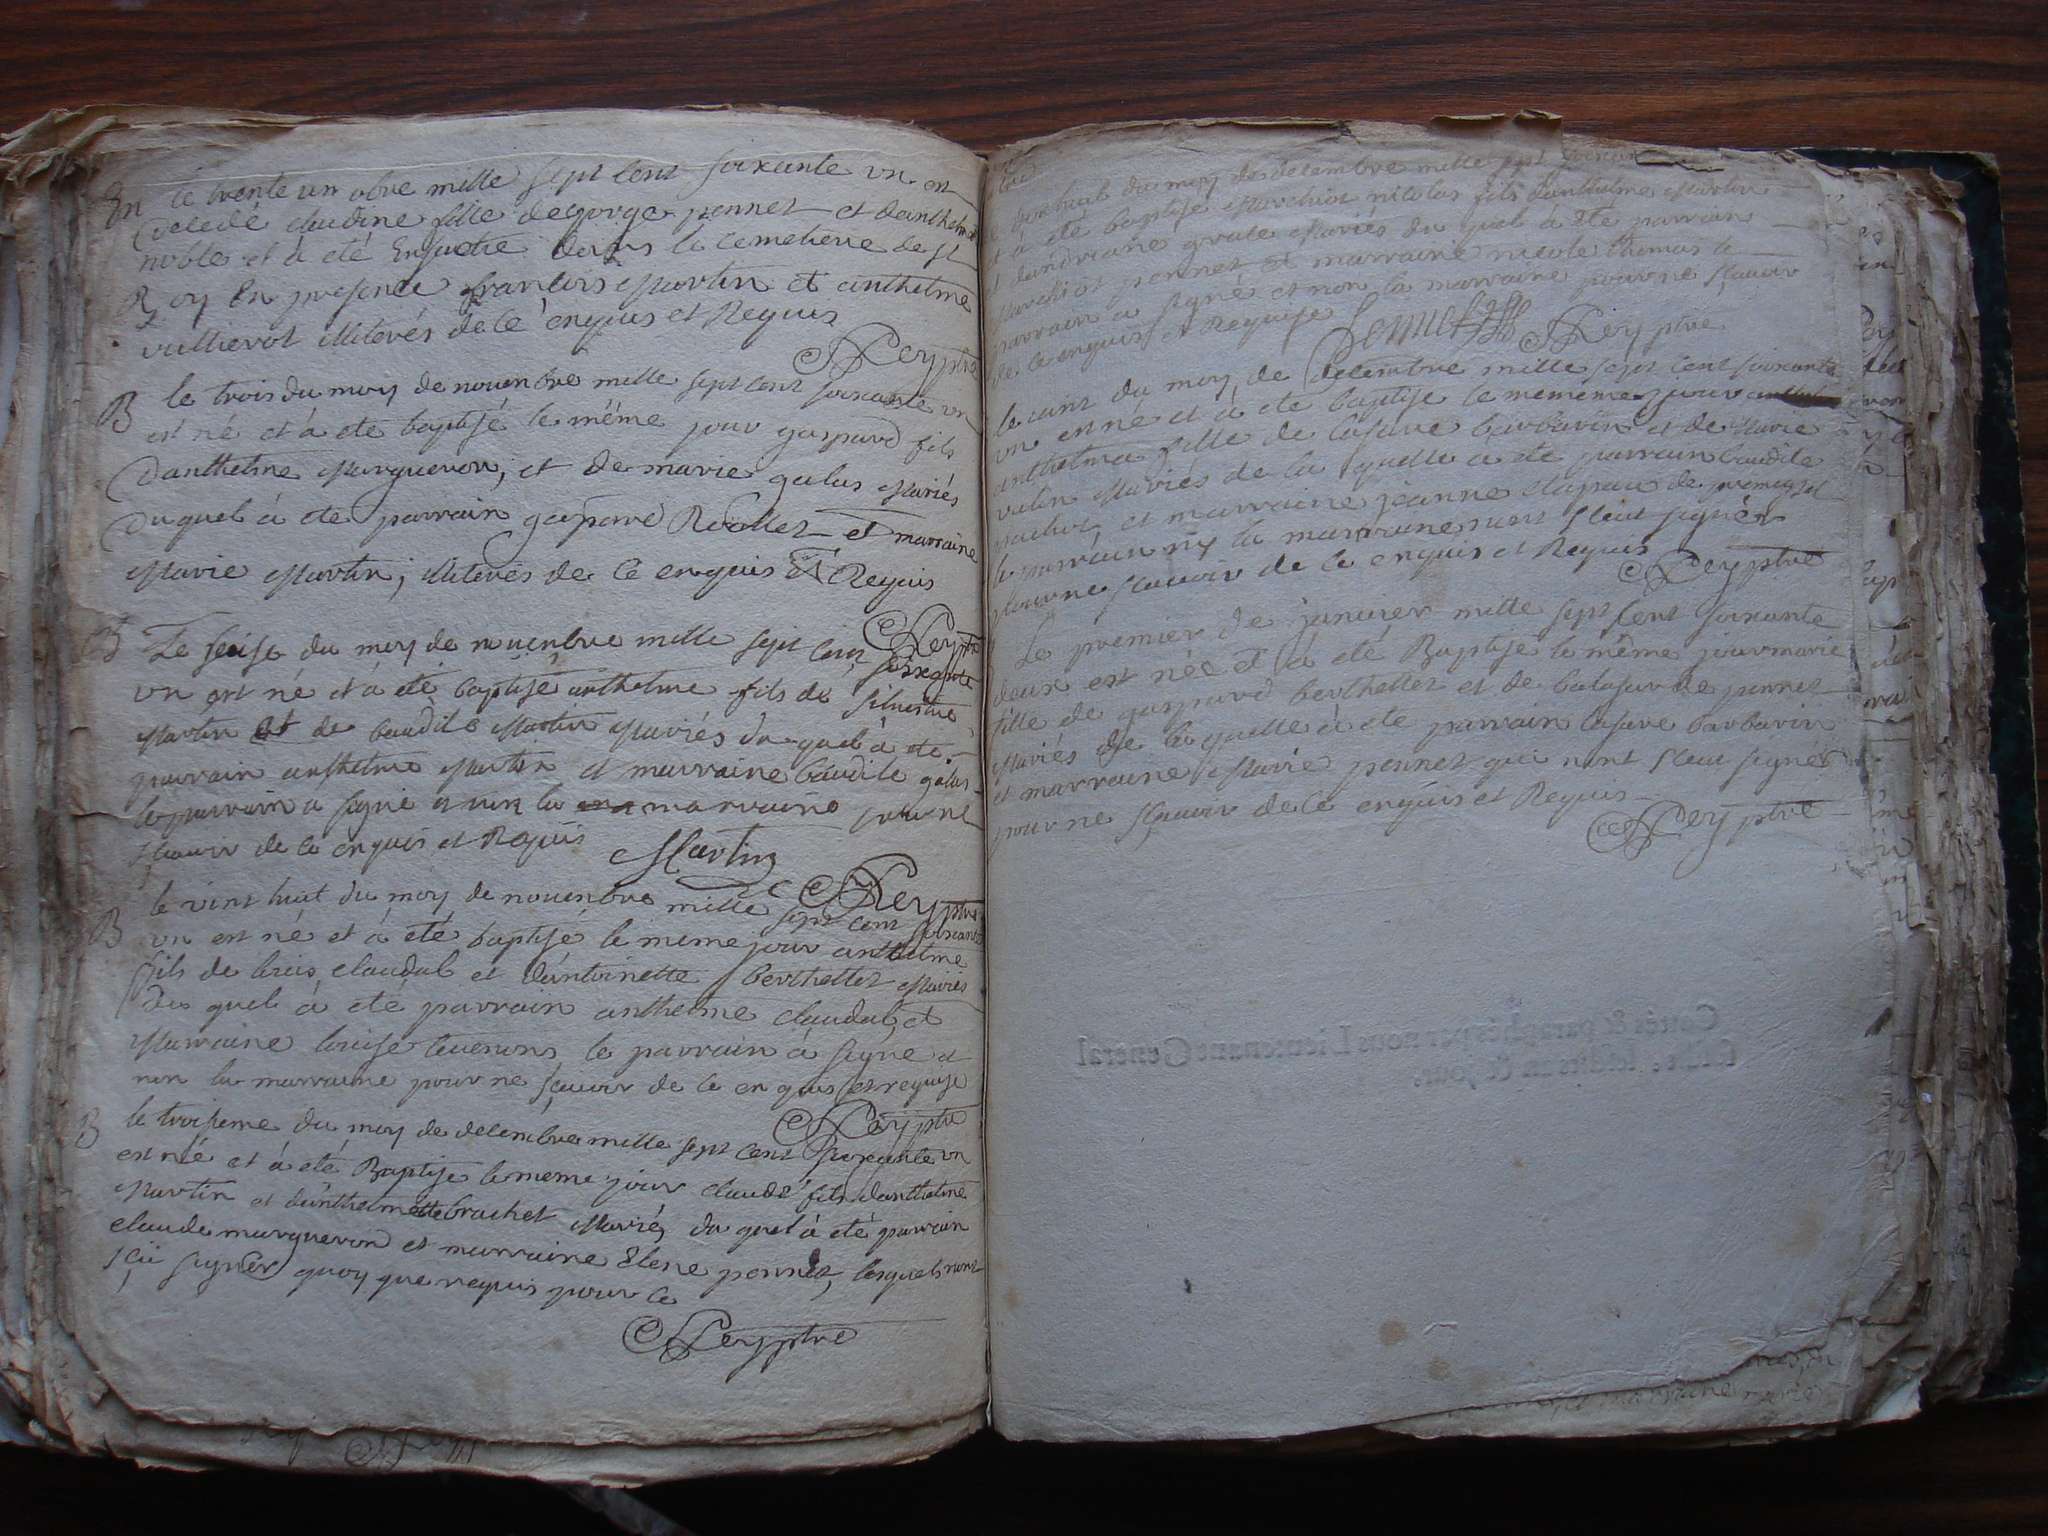 En
ce trente un obre mille sept cent soixante un est
decedé claudine fille de george pennet et danthelme
noble et à été Ensevelie dans le cemetiere de st
Roy En presence francois Martin et anthelme
vullierot illiterés de ce enquis et Requis
Rey ptre
B
le trois du moy de nouenbre mille sept cent soixante un
est né et à été baptisé le même jour gaspard fils
danthelme Margueron, et de marie galus Mariés
Du quel à été parrain gaspard Rollet et marraine
Marie Martin, illiterés de ce enquis et Requis
Rey ptre
B
Le seise du moy de nouenbre mille sept cent soixante
un est né et à été baptisé anthelme fils de silvestre
Martin et de baudile Martin Mariés du quel à été
parrain anthelme Martin et marraine baudile galus
le parrain à signé et non la marraine pour ne
scauoir de ce enquis et Requis
Martin
Rey ptre
B
le vint huit du moy de nouenbre mille sept cent soixante
un est né et à été baptisé le même jour anthelme
fils de louis claudal et d'antoinette berthellet Mariés
Du quel à été parrain anthelme claudal, et
Marraine louise le parrain à signe et
non la marraine pour ne sçauoir de ce enquis et requise
Rey ptre
B
le troisieme du moy de decembre mille sept cent soixante un
est né et à été Baptise le même jour claude fils danthelme
Martin et d'anthelmette brachet Mariés du quel à été parrain
claude marguerond et marraine Elene pennet, lesquels nont
sçu signer quoy que requis pour ce
Rey ptre
huit du moy de decembre mille sept
et à été baptisé Marchiot nicolas fils d'anthelme Martin
et dandriane grate Mariés du quel à été parrain
Marchiot pennet et marraine nicole thomas le
parrain a signé et non la marraine pour ne sçauoir
de ce enquis et Requise
Pennet
Rey ptre
le cint du moy de decembre mille sept cent soixante
un est né et à été baptise le mememe jour
anthelma fille de lasare barbarin et de Marie
Mariés de la quelle a été parrain baudile
brachet et marraine jeanne de premeysel
le parrain ny la marraine nont sceut signér
pour ne scauoir de ce enquis et Requis
Rey ptre
Le premier de januier mille sept cent soixante
deux est née et à été Baptise le même jour marie
fille de gaspard berthellet et de balasarde pennet
Mariés de la quelle à été parrain lasare barbarin
et marraine Marie pennet qui nont sceut signér
pour ne sçauoir de ce enquis et Requis
Rey ptre